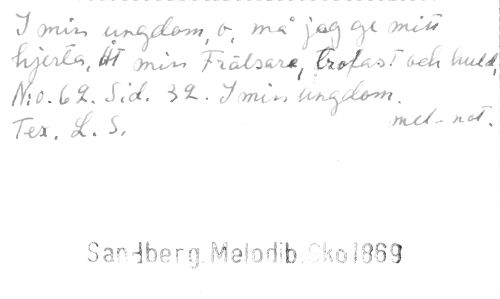 I min ungdom, o, må jag ge mitt
hjerta, Åt min Frälsare, trofast och huld,
N:o. 62. Sid. 32. I min ungdom.
Tex. L. S. mel- not.
Sandberg. Melodib. Sko 1869